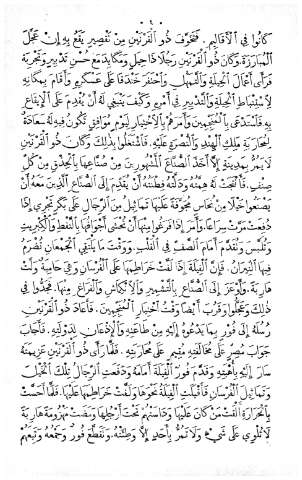 ٦
كانوا في الأقاليم. فتخوف ذو القرنين من تقصير يقع به إن عجل
المبارزة وكان ذو القرنين رجلا ذا حيل ومكايد مع حسن تدبير وتجربة
فرأى إعمال الحيلة والتمهل واحتفر خندقا على عسكره وأقام بمكانه
لاستنباط الحيلة والتدبير في أمره وكيف ينبغي له أن يقدم على الإيقاع
به فاستدعى بالمنجمين وأمرهم بالاختيار ليوم موافق تكون فيه سعادة
لمحاربة ملك الهند والنصرة عليه. فاشتغلوا بذلك وكان ذو القرنين
لا يمر بمدينة إلا أخذ الصناع المشهورين من صناعها بالحذق من كل
صنف. فأنتجت له همته ودلته فطنته أن يتقدم إلى الصناع الذين معه أن
يصنعوا خيلا من نحاس مجوفة عليها تماثيل من الرجال على بكر تجري إذا
دفعت مرت سراعا. وأمر إذا فرغوا منها أن تحشى أجوافها بالنفط والكبريت
وتلبس وتقدم أمام الصف في القلب. ووقت ما يلتقي الجمعان تضرم
فيها النيران. فإن الفيلة إذا لفت خراطيمها على الفرسان وهي حامية ولت
هاربة وأوعز إلى الصناع بالتشمير والانكماش والفراغ منها. فجدوا في
ذلك وعجلوا وقرب أيضا وقت اختيار المنجمين. فأعاد ذو القرنين
رسله إلى فور بما يدعوه إليه من طاعته والإذعان لدولته. فأجاب
جواب مصر على مخالفته مقيم على محاربته. فلما رأى ذو القرنين عزيمته
سار إليه بأهبته وقدم فور الفيلة أمامه ودفعت الرجال تلك الخيل
وتماثيل الفرسان فأقبلت الفيلة نحوها ولفت خراطيمها عليها. فلما أحست
بالحرارة ألقت من كان عليها وداستهم تحت أرجلها ومضت مهزومة هاربة
لا تلوي على شيء ولا تمر بأحد إلا وطئته. وتقطع فور وجمعه وتبعهم